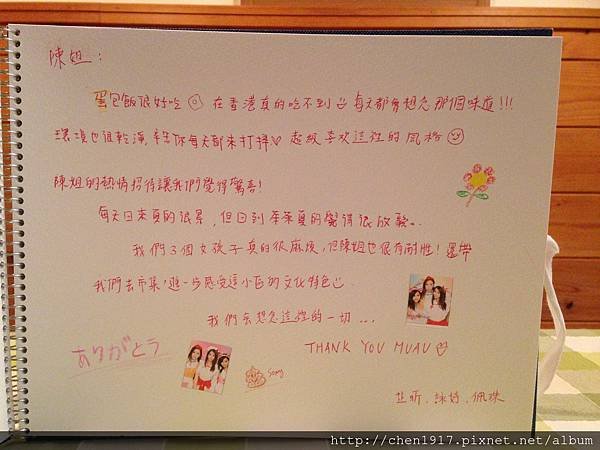 陳姐：
蛋包飯很好吃 在香港真的吃不到 每天都會想念那個味道!!!
環境也很乾淨, 辛苦你每天都來打掃♡ 超級喜欢這裡的風格
陳姐的熱情招待讓我們覺得驚喜!
每天日來真的很累, 但回到 真的覺得很放鬆..
我們3個女孩子真的很麻煩, 但陳姐也很有耐性! 還帶
我們去市集, 進一步感受這小区的文化特色
我們会想念這裡的一切 ...
ありがとう
THANK YOU MUAU
Song
芷昕、詠婷、佩珠
http://chen1917.pixnet.net/album